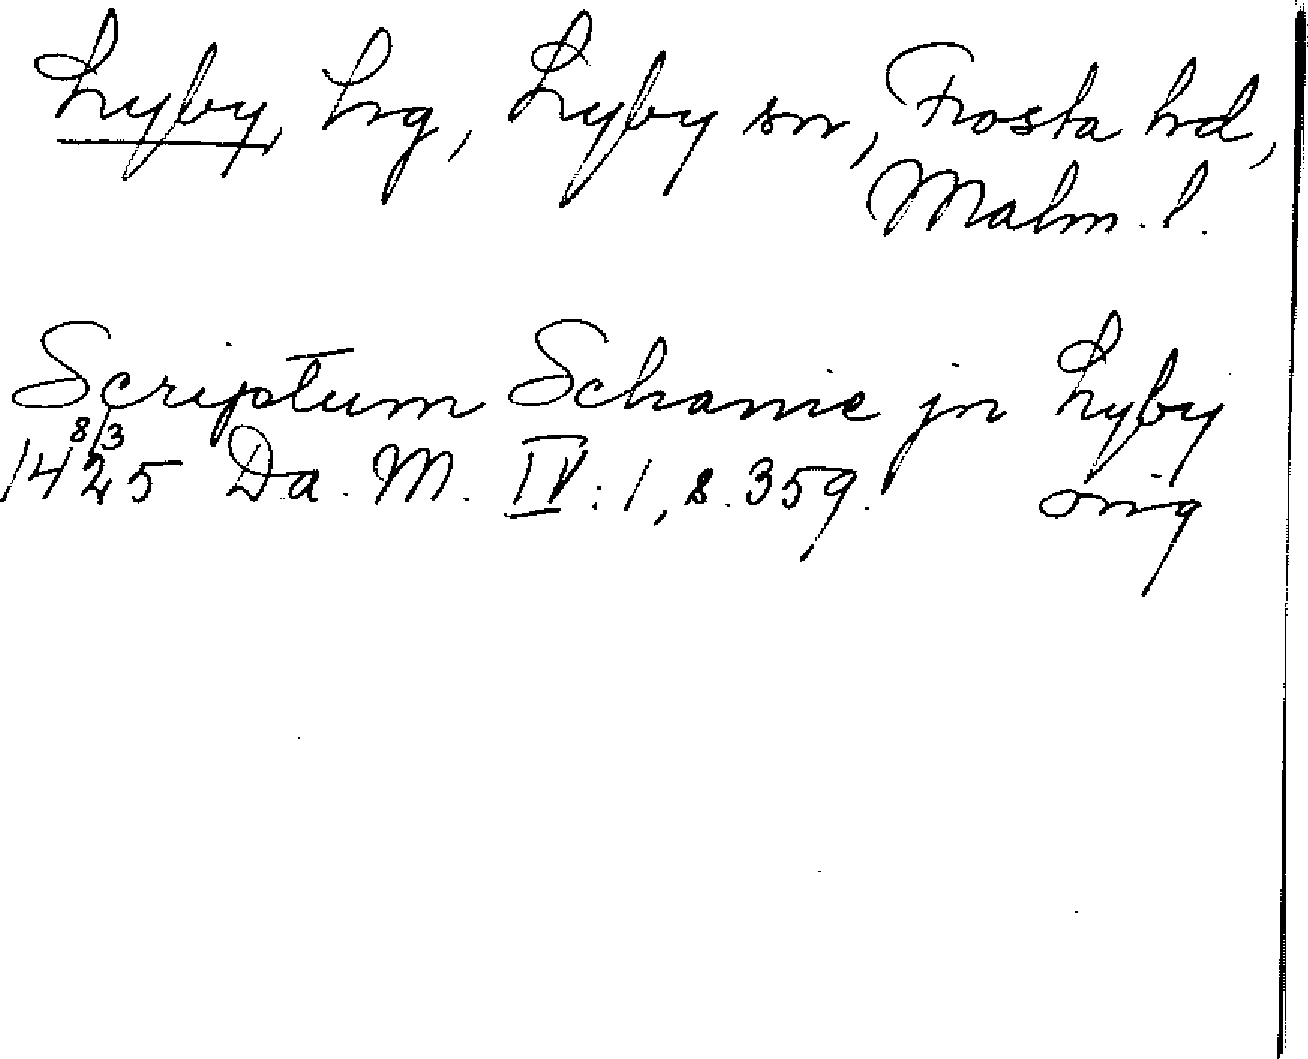 Lyby, hg, Lyby sn, Frosta hd,
Malm. l.
Scriptum Schanie jn Lyby
1425 8/3 Da. M. IV: 1, s. 359. orig